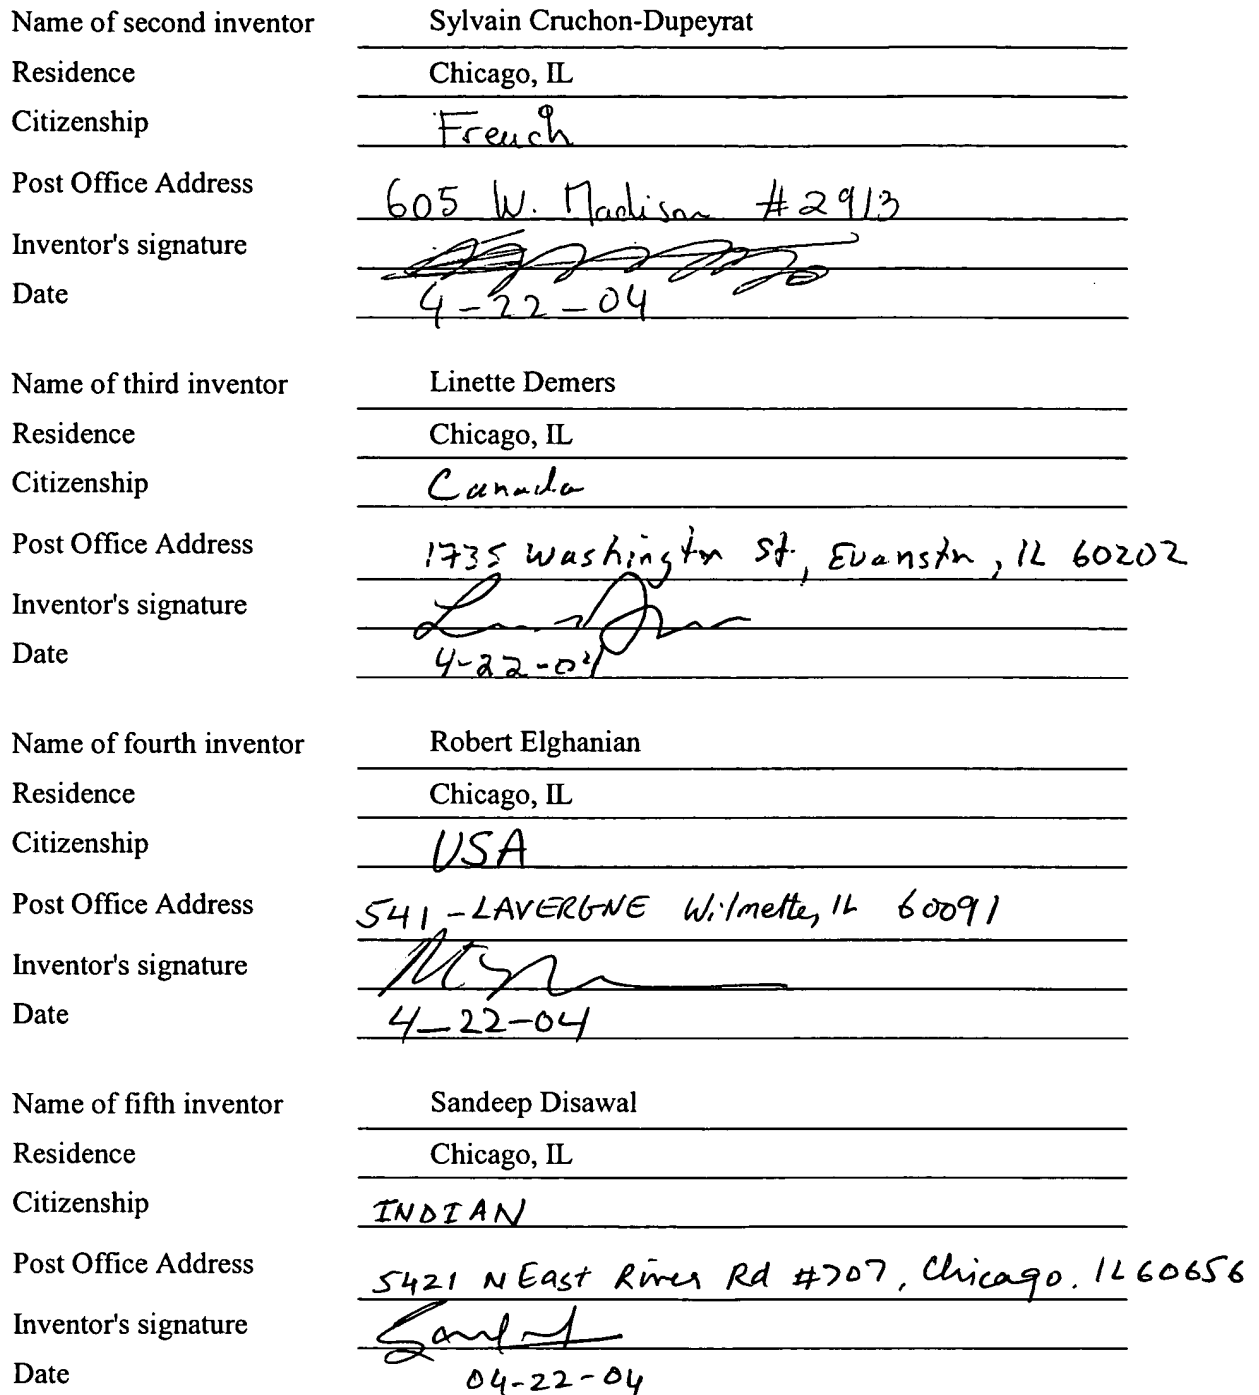 Name of second inventor Sylvain Cruchon-Dupeyrat
Residence Chicago, IL
Citizenship French
Post Office Address 605 W. Madison #2913
Inventor's signature
Date 4-22-04
Name of third inventor Linette Demers
Residence Chicago, IL
Citizenship Canada
Post Office Address 1735 Washington St., Evanston, IL 60202
Inventor's signature
Date 4-22-04
Name of fourth inventor Robert Elghanian
Residence Chicago, IL
Citizenship USA
Post Office Address 541-LAVERGNE Wilmette, IL 60091
Inventor's signature
Date 4-22-04
Name of fifth inventor Sandeep Disawal
Residence Chicago, IL
Citizenship INDIAN
Post Office Address 5421 N East River Rd #707, Chicago. IL 60656
Inventor's signature
Date 04-22-04